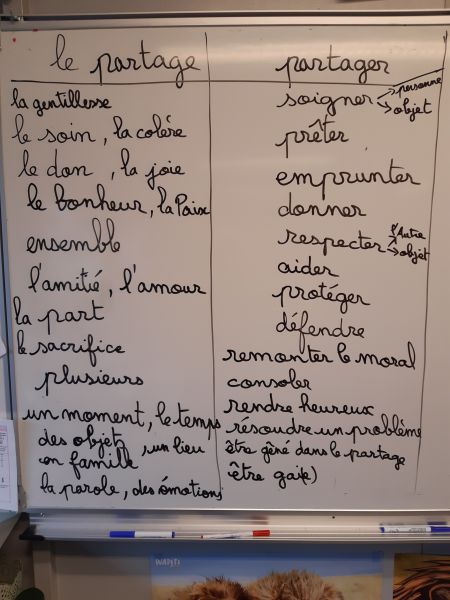 le partage
la gentillesse
le soin, la colère
le don, la joie
le bonheur, la Paix
ensemble
l'amitié, l'amour
la part
le sacrifice
plusieurs
un moment, le temps
des objets, un lieu
en famille
la parole, des émotions
partager
soigner → personne
→ objet
prêter
emprunter
donner
respecter → l'Autre
→ objet
aider
protéger
défendre
remonter le moral
consoler
rendre heureux
résoudre un problème
être gêné dans le partage
être gai(e)
WAPITI